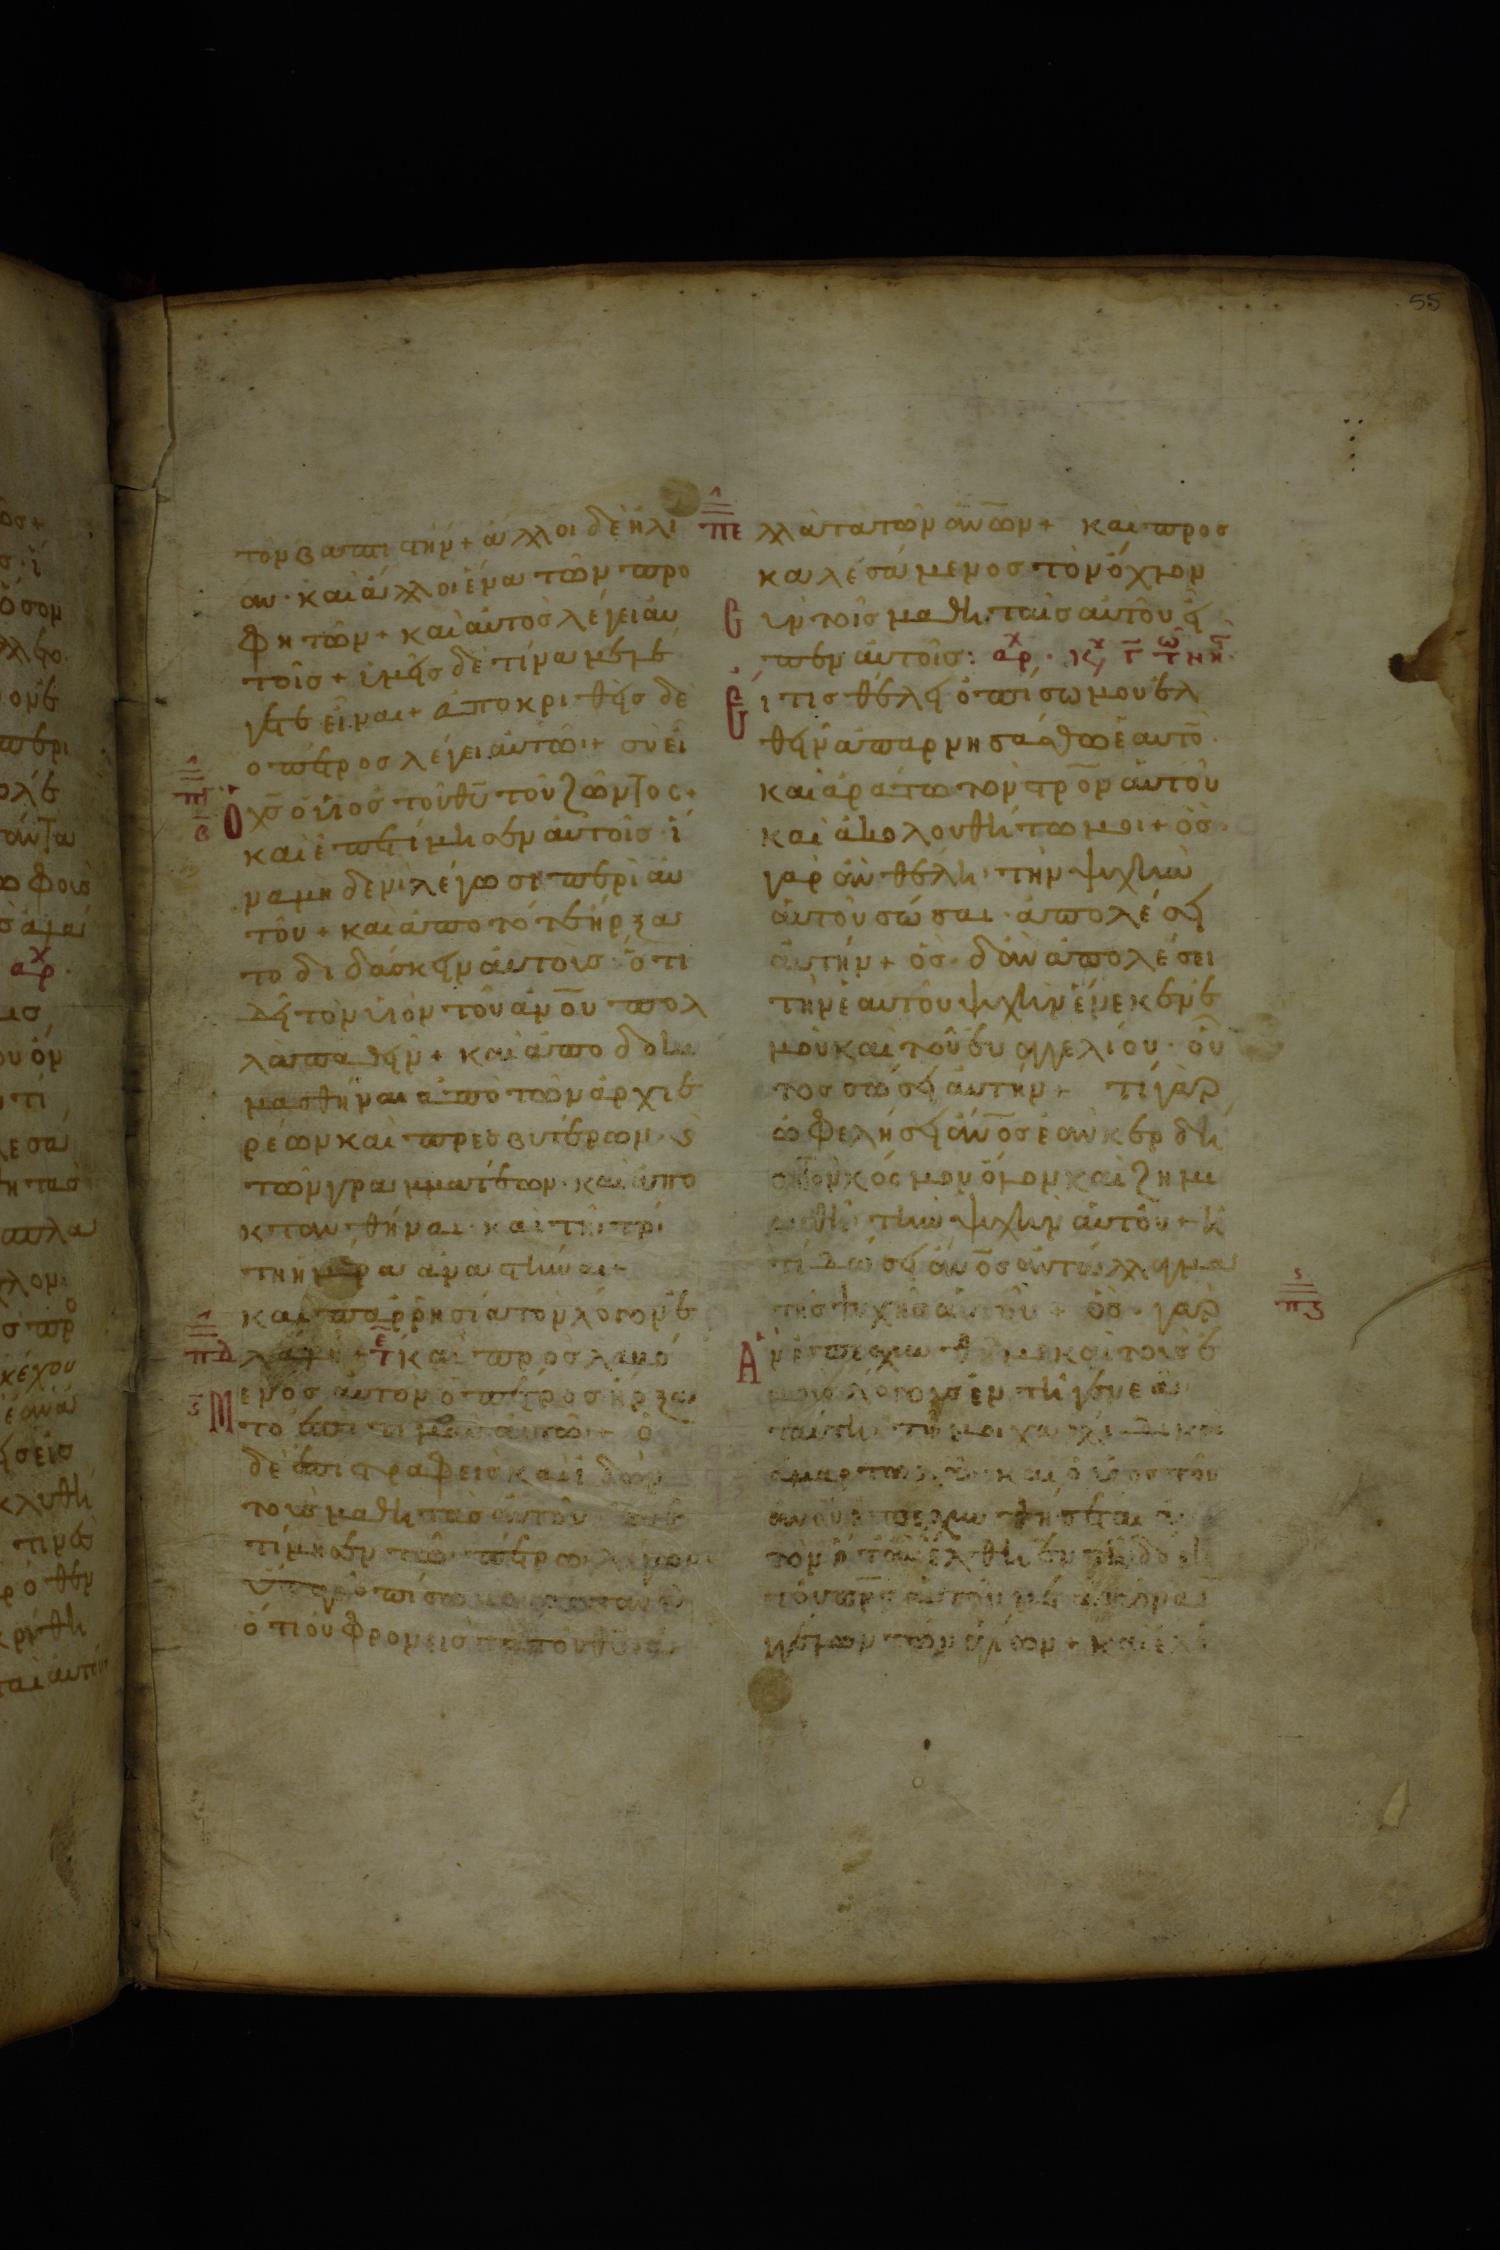 55
τον βαπτιστήν + ἄλλοι δὲ ἠλί
αν · καὶ ἄλλοι ἕνα τῶν προ
φητῶν + καὶ αὐτὸς λέγει αὐ
τοῖς + ὑμεῖς δὲ τίνα με λέ
γετε εἶναι + ἀποκριθεὶς δὲ
ὁ πέτρος λέγει αὐτῶ + σὺ εἶ
ὁ χς̅ ὁ υἱὸς τοῦ θυ̅ τοῦ ζῶντος +
καὶ ἐπετίμησεν αὐτοῖς ἵ
να μηδενὶ λέγωσι περὶ αὐ
τοῦ + καὶ ἀπὸ τότε ἤρξα
το διδάσκειν αὐτοὺς ὅτι
δεῖ τὸν υἱὸν τοῦ ἀνου̅ πολ
λὰ παθεῖν + καὶ ἀποδοκι
μασθῆναι ἀπὸ τῶν ἀρχιε
ρέων καὶ πρεσβυτέρων ϗ
τῶν γραμματέων · καὶ ἀπο
κτανθῆναι · καὶ τῆ τρί
τη ἡμέρα ἀναστῆναι +
πδ
καὶ παρρησία τὸν λόγον ἐ
λάλει + τ καὶ προσλαβό
Μενος αὐτὸν ὁ πέτρος ἤρξα
το ἐπιτιμᾶν αὐτῶ + ὁ
δὲ ἐπιστραφεὶς καὶ ἰδὼν
τοὺς μαθητὰς αὐτοῦ
τίμησεν τῶ πέτρω λέγων
ὕπαγε ὀπίσω μου σατανᾶ
ὅτι οὐ φρονεῖς
πε
λλὰ τὰ τῶν ἀνω̅ν + καὶ προσ
καλεσάμενος τὸν ὄχλον
Cὺν τοῖς μαθηταῖς αὐτοῦ εἶ
πεν αὐτοῖς : αρχ · κυ
Εἴ τις θέλει ὀπίσω μου ἐλ
θεῖν ἀπαρνησάσθω ἑαυτο̅ ·
καὶ ἀράτω τὸν στρο̅ν αὐτοῦ
καὶ ἀκολουθήτω μοι + ὃς
γὰρ ἂν θέλη τὴν ψυχὴν
αὐτοῦ σῶσαι · ἀπολέσει
αὐτήν + ὃς δ' ἂν ἀπολέσει
τὴν ἑαυτοῦ ψυχὴν ἕνεκεν ἐ
μοῦ καὶ τοῦ εὐαγγελίου · οὗ
τος σώσει αὐτήν + τί γὰρ
ὠφελήσει ἀνο̅ς ἐὰν κερδή
ση τὸν κόσμον ὅλον καὶ ζημι
ωθῆ τὴν ψυχὴν αὐτοῦ + ἢ
τί δώσει ἀνο̅ς ἀντάλλαγμα
τῆς ψυχῆς αὐτοῦ + ὃς γὰρ
πς
Ἀν ἐπαισχυνθῆ με καὶ τοὺς ἐ
μοὺς λόγους ἐν τῆ γενεᾶ
ταύτη τῆ μοιχαλίδι καὶ
ἁμαρτωλῶ · καὶ ὁ υἱὸς τοῦ
ἀνου̅ ἐπαισχυνθήσεται αὐ
τὸν ὅταν ἔλθη ἐν τῆ δόξη
τοῦ πρς̅ αὐτοῦ μετὰ
γέλων τῶν ἁγίων + καὶ ἔλε